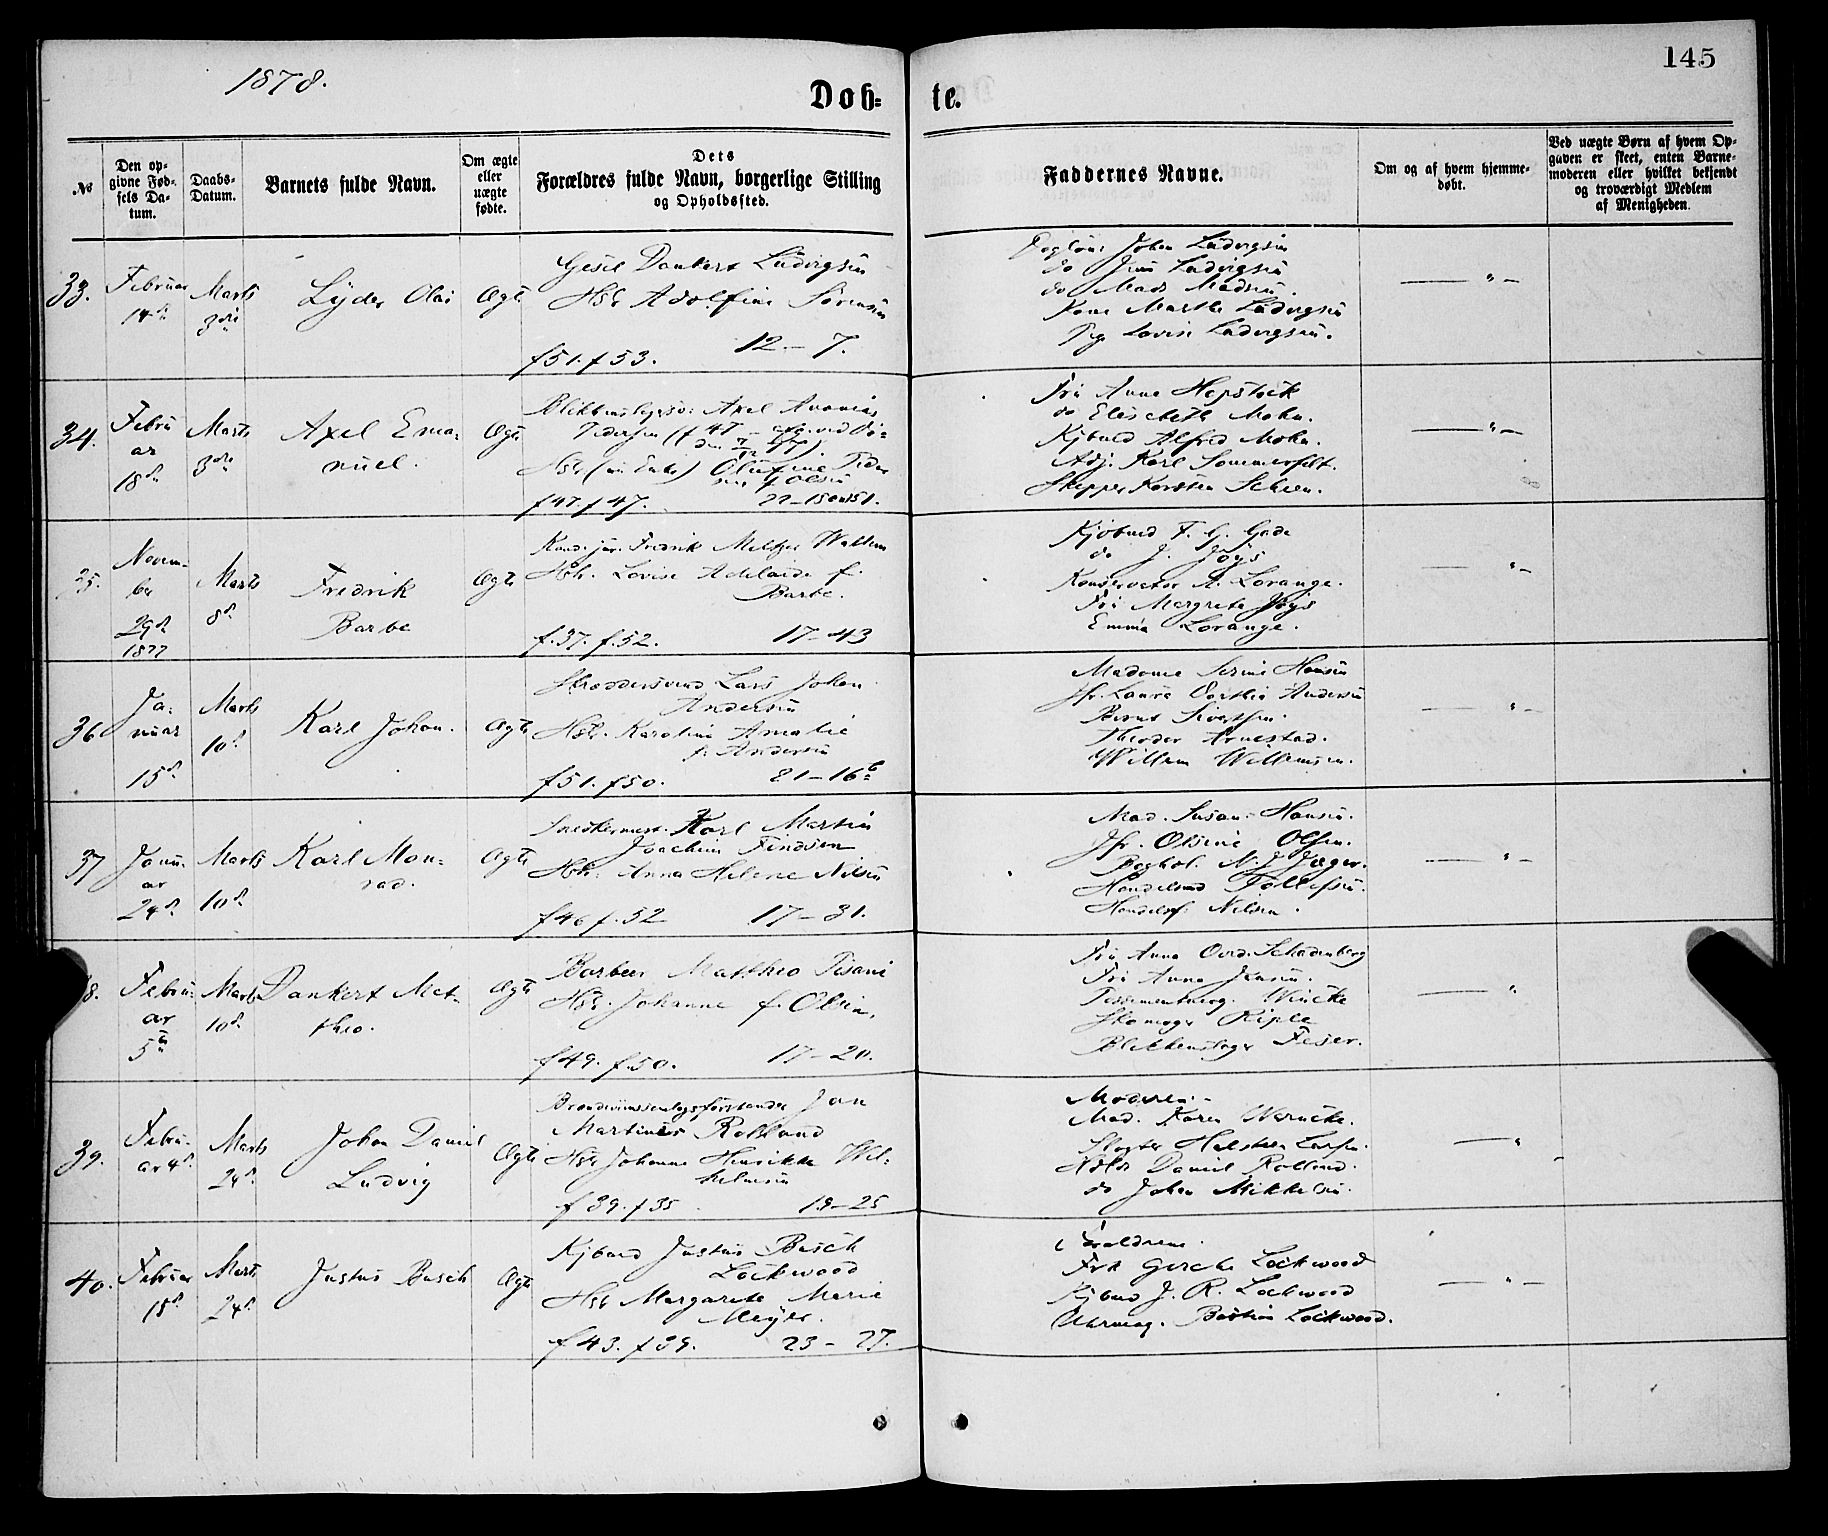 1878.
145
Døb-
te.
№
Den op-
givne Fød-
sels Da-
tum.
Daabs-
Datum.
Barnets fulde Navn.
Om ægte
eller
uægte
fødte.
Dets
Forældres fulde Navn, borgerlige Stilling
og Opholdssted.
Faddernes Navne.
Om og af hvem hjemme-
døbt.
Ved uægte Børn af hvem Op-
gaven er skeet, enten Barne-
moderen eller hvilket bekjendt
og troværdigt Medlem
af Menigheden.
33.
Februar
14d
Marts
3die
Lyder Olai
Ægte
Gesel Dankert Ludvigsen
Hst Adolfine Sørensen
f 51. f 53. 12 - 7.
Johan Ludvigsen
do Jens Ludvigsen
do Mads Madsen.
Kone Marthe Ludvigsen
Pg Lovise Ludvigsen.
34.
Febru
ar
18d
Marts
3die
Axel Ema-
nuel.
Ægte
Axel Ananias
Pedersen
Olufine Peder
f 47. f 47.
Fru Anna Hepstock
do Elisabeth Mohn.
Kjbmd Alfred Mohn.
Adj. Karl Sommerfelt.
Skipper Karsten
35.
Novem-
ber
29d
1877
Marts
8d
Fredrik
Barbe
Ægte
Kand. jur. Fredrik Meltzer Wallem
Hst. Lovise Adelaide f.
Barbe.
f. 37. f. 52. 17 - 43
Kjøbmd F. G. Gade
do J. Joys
Konservator A. Lorange.
Fru Margrete Joys
Emma Lorange.
36
Ja-
nuar
15d
Marts
10d
Karl Johan.
Ægte
Skræddersvend Lars Johan
Andersen
Hst. Karoline Amalie
f. Andersen
f 51. f 50. 21 - 16b
Madame Serine Hansen
Jfr. Laura Dorthea Andersen
Bernt Sivertsen.
Theodor Arnestad.
Willem Willemsen.
37
Janu-
ar
24d
Marts
10d
Karl Mon-
rad.
Ægte
Snedkermest. Karl Martin
Joachim Findsen
Hst. Anna Helene Nilsen
f 46 f. 52 17 - 31.
Mad. Susan. Hansen.
Jfr. Olsine Olsen.
Boghol. N. J. Jæger.
Handelsmd Tollefsen.
Handelsf. Nilsen.
8.
Febru-
ar
5te
Marts
10d
Dankert Mat-
theo.
Ægte
Barber Mattheo Pisani
Hst. Johanne f. Olsen.
f 49. f. 50. 17 - 20.
Fru Anna Ovid. Schadenberg
Fru Anna Jensen.
Wincke
Skomager Riple
Blikkenslager Feser.
39.
Febru-
ar 4d
Marts
24d
Johan Daniel
Ludvig
Ægte
Jan
Martinus Rolland
Hst Johanna Henrikke Wil-
helmsen
f 39. f 35. 19 - 25
Moderen.
Mad. Karen Warncke.
Slagter Halsten Larsen.
Daniel Rolland.
do Johan Mikkelsen.
40.
Februar
15d
Marts
24d
Justus Busch
Ægte
Kjbmd Justus Busch
Lockwood
Hst Margarete Marie
Meyer.
f 43. f 39. 23 - 27.
Forældrene.
Frk Gesche Lockwood
Kjbmd J. R. Lockwood
Uhrmag. Bastian Lockwood.